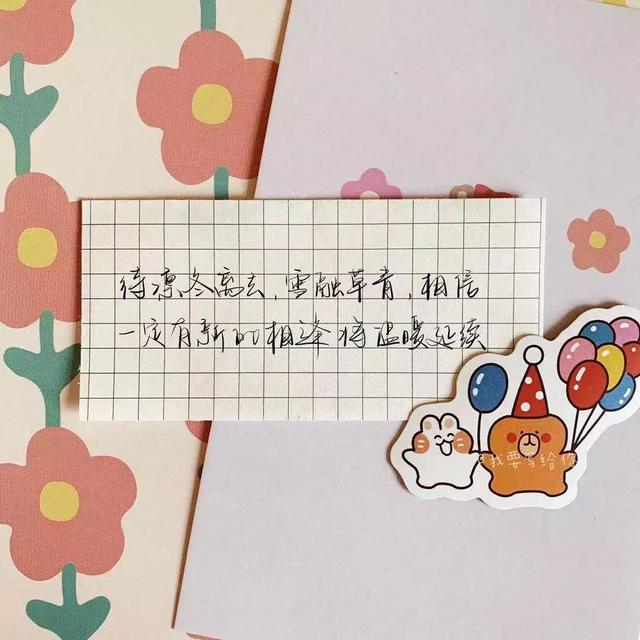 待凛冬离去，雪融草青，相信
一定有新的相逢将温暖延续
我要写给你